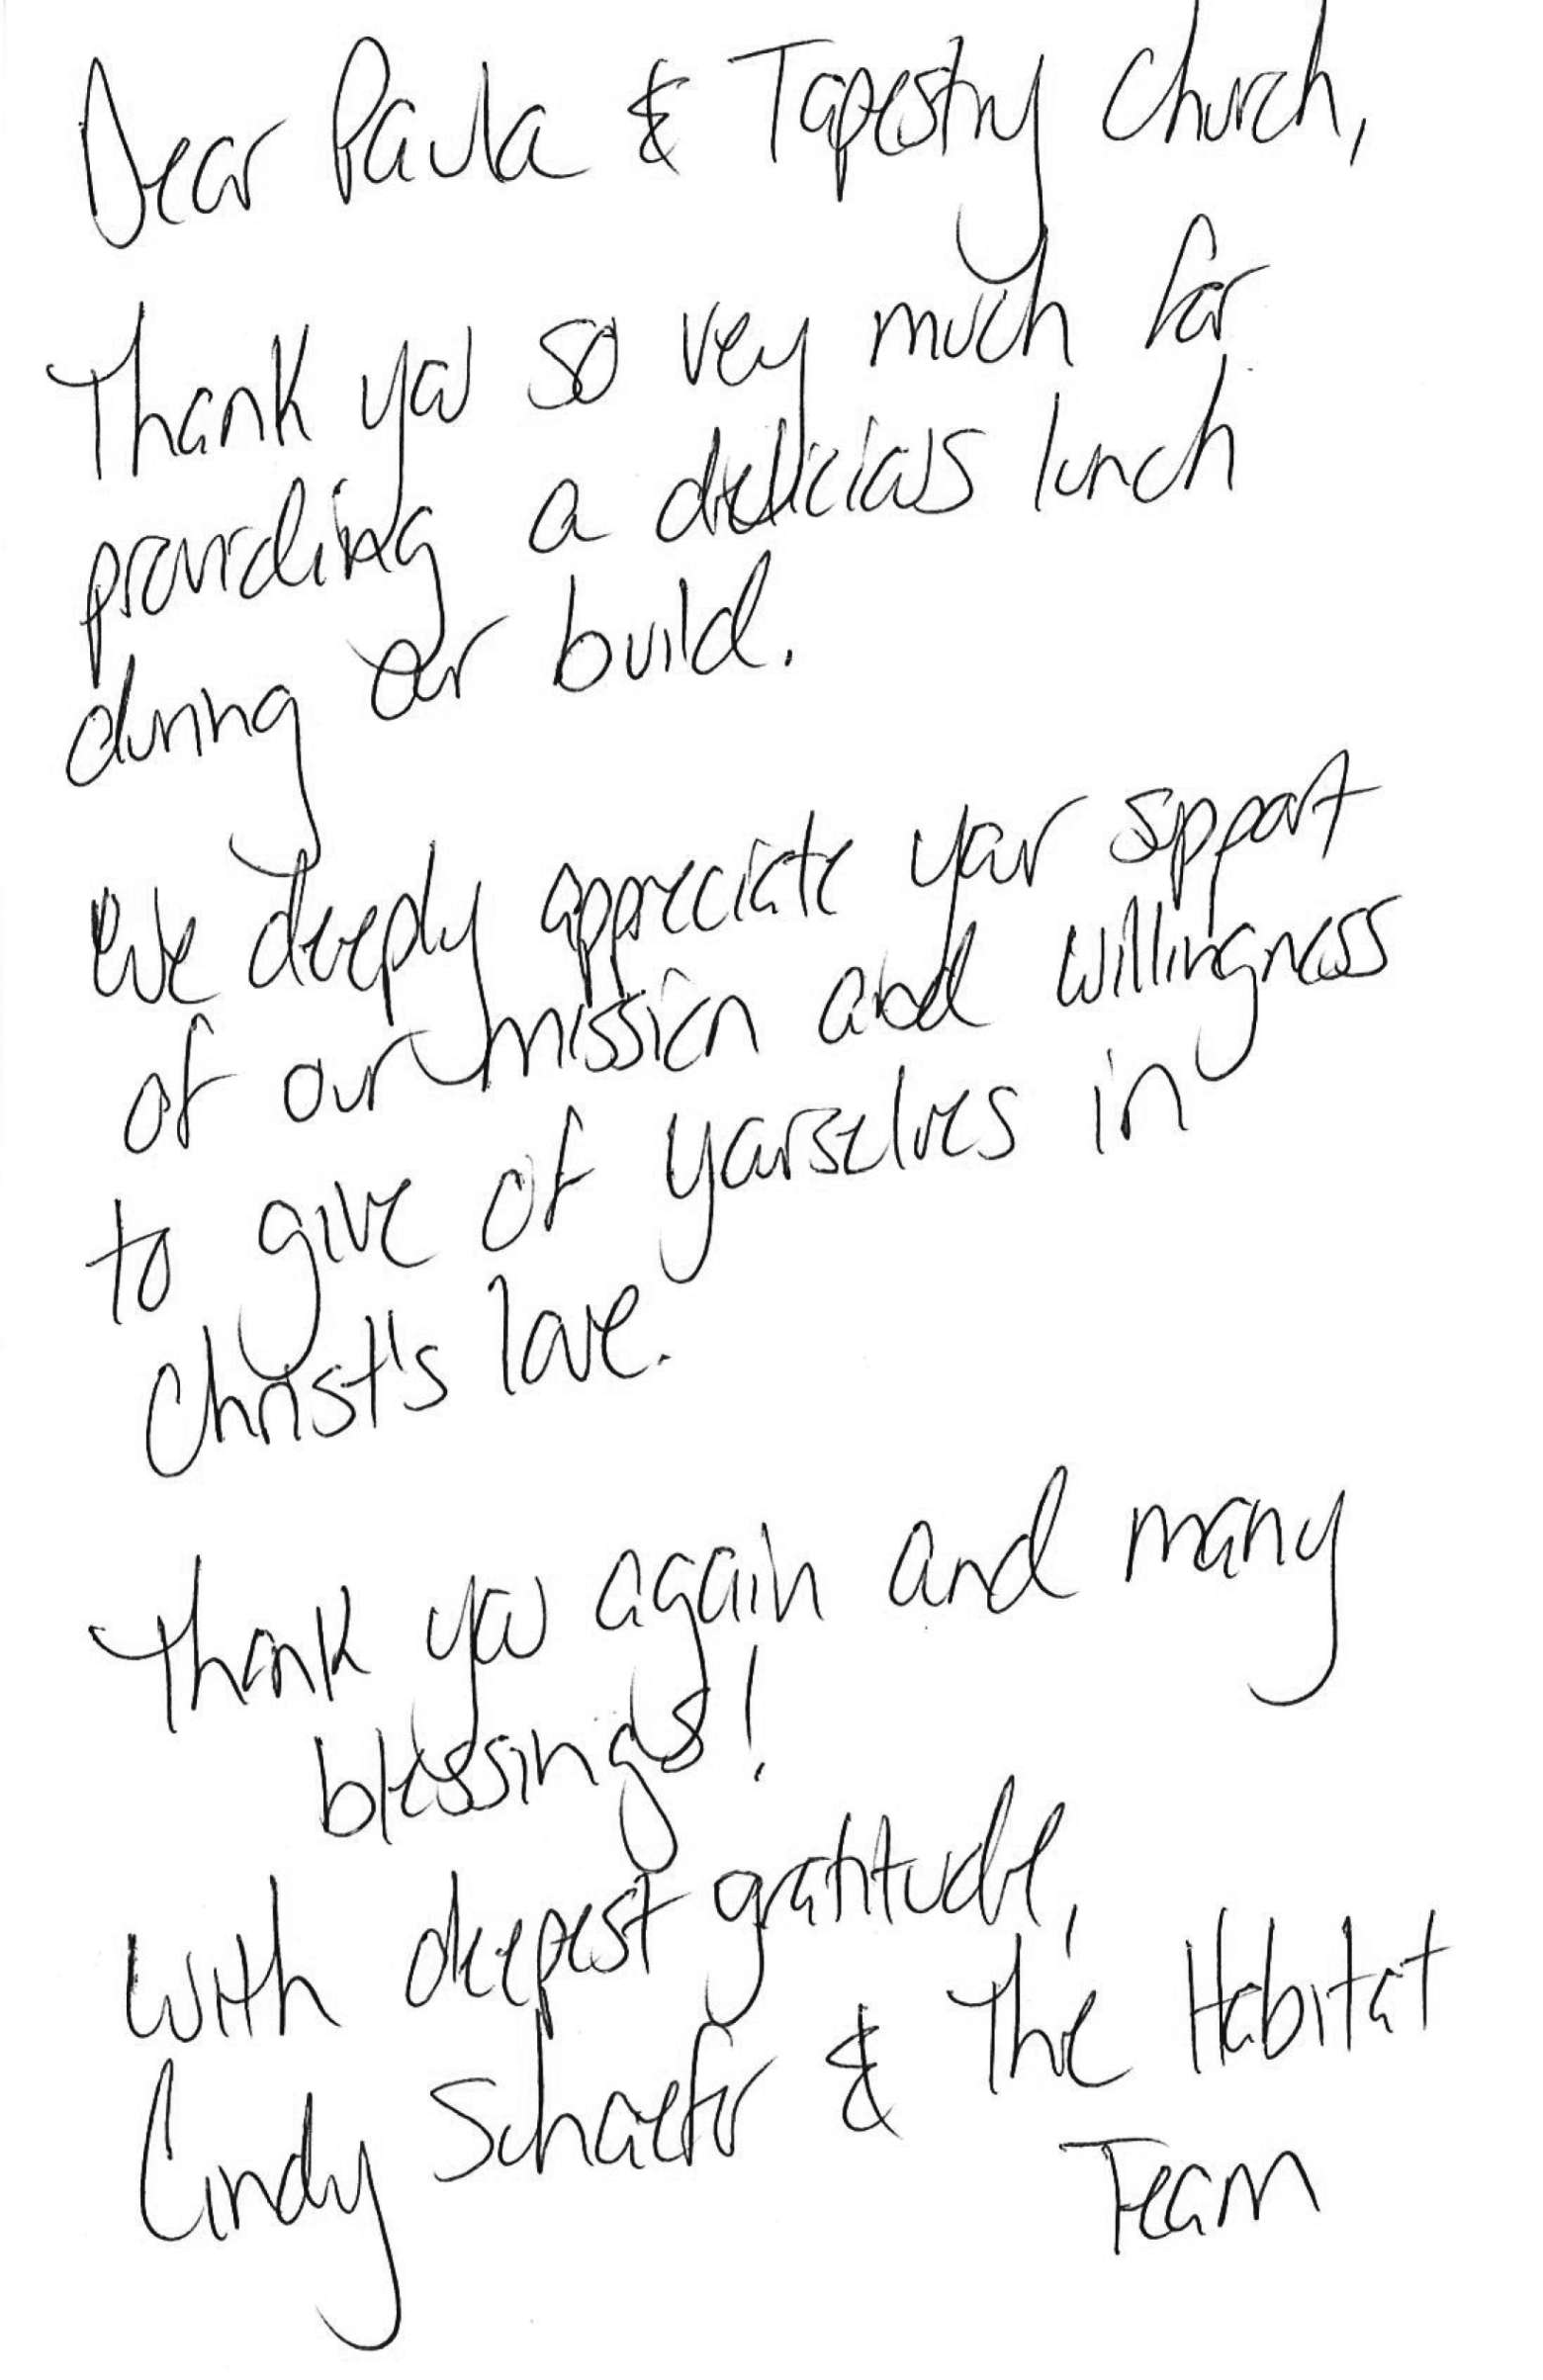 Dear Paula & Tapestry Church,
Thank you so very much for
providing a delicious lunch
during our build.
We deeply appreciate your support
of our mission and willingness
to give of yourselves in
Christ's love.
Thank you again and many
blessings!
With deepest gratitude,
Cindy Schaefer & The Habitat
Team